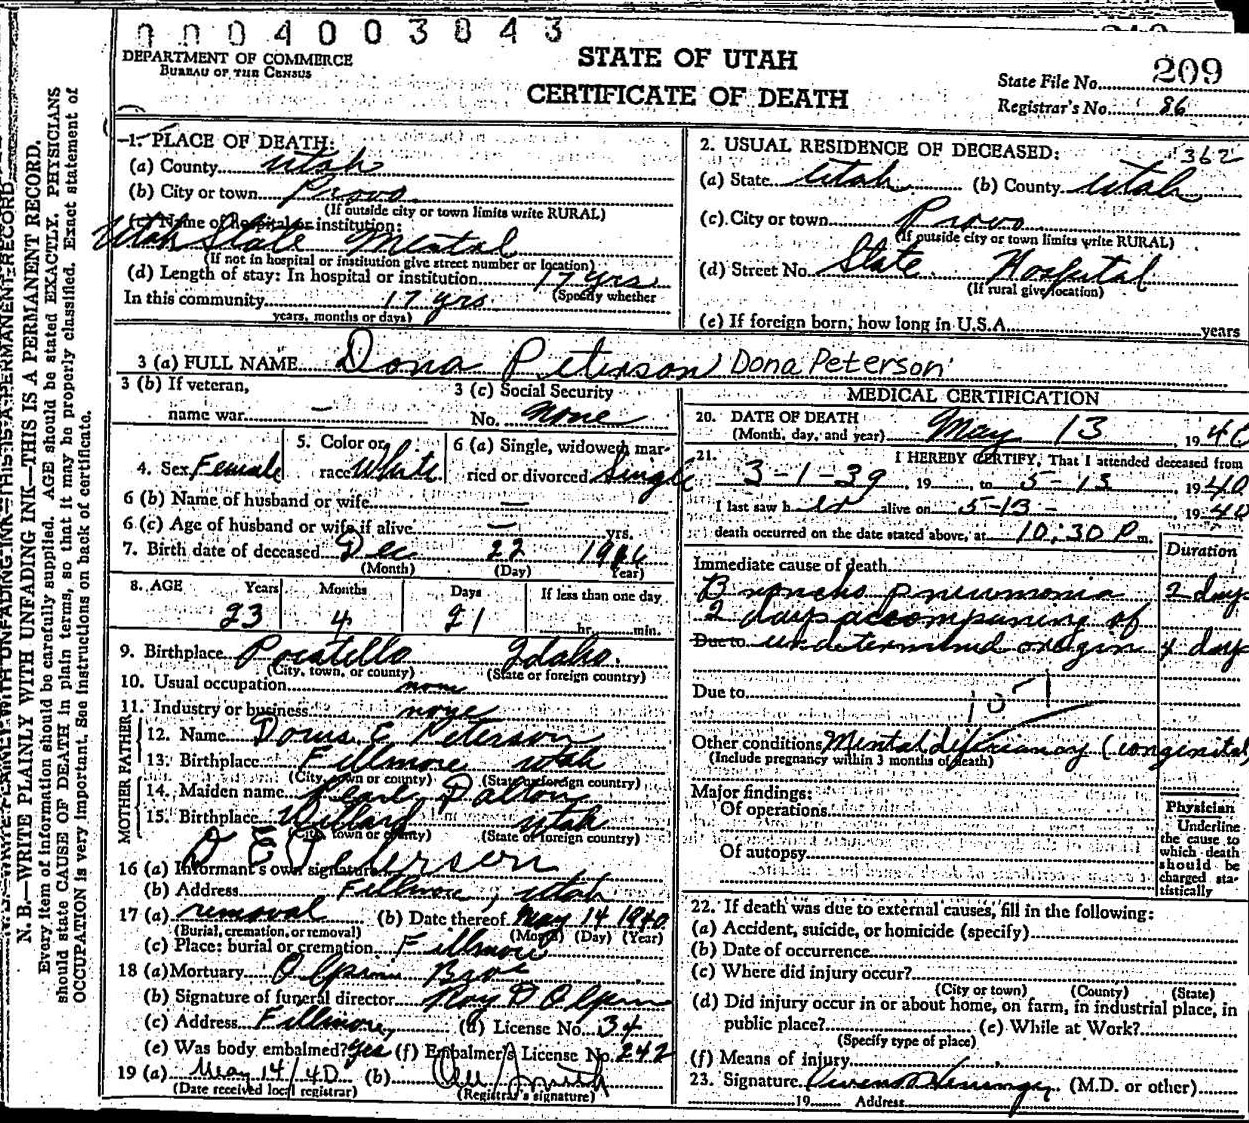 0004003843
DEPARTMENT OF COMMERCE
BUREAU OF THE CENSUS
STATE OF UTAH
CERTIFICATE OF DEATH
State File No. 209
Registrar's No. 86
N. B.—WRITE PLAINLY WITH UNFADING INK—THIS IS A PERMANENT RECORD.
Every item of information should be carefully supplied. AGE should be stated EXACTLY. PHYSICIANS
should state CAUSE OF DEATH in plain terms, so that it may be properly classified. Exact statement of
OCCUPATION is very important. See instructions on back of certificate.
1. PLACE OF DEATH:
(a) County Utah
(b) City or town Provo
(If outside city or town limits write RURAL)
(c) Name of hospital or institution:
Utah State Mental
(If not in hospital or institution give street number or location)
(d) Length of stay: In hospital or institution 17 yrs
(Specify whether
In this community 17 yrs
years, months or days)
2. USUAL RESIDENCE OF DECEASED: 362
(a) State Utah (b) County Utah
(c) City or town Provo
(If outside city or town limits write RURAL)
(d) Street No. State Hospital
(If rural give location)
(e) If foreign born, how long in U.S.A. years
3 (a) FULL NAME Dona Peterson Dona Peterson
3 (b) If veteran,
name war —
3 (c) Social Security
No. none
4. Sex Female
5. Color or
race White
6 (a) Single, widowed, mar-
ried or divorced Single
6 (b) Name of husband or wife —
6 (c) Age of husband or wife if alive — yrs.
7. Birth date of deceased Dec 22
(Month) (Day) (Year)
8. AGE Years Months Days If less than one day
23 4 21 hr. min.
9. Birthplace Pocatello Idaho.
(City, town, or county) (State or foreign country)
10. Usual occupation none
11. Industry or business none
FATHER
12. Name E Peterson
13. Birthplace Fillmore Utah
(City, town or county) (State or foreign country)
MOTHER
14. Maiden name Pearl Dalton
15. Birthplace Willard Utah
(City, town or county) (State or foreign country)
16 (a) Informant's own signature D E Peterson
(b) Address Fillmore, Utah
17 (a) removal (b) Date thereof May 14 1940
(Burial, cremation, or removal) (Month) (Day) (Year)
(c) Place: burial or cremation Fillmore
18 (a) Mortuary Olpin Bros
(b) Signature of funeral director Roy D Olpin
(c) Address Fillmore, (d) License No. 34
(e) Was body embalmed? Yes (f) Embalmer's License No. 242
19 (a) May 14/40 (b)
(Date received local registrar) (Registrar's signature)
MEDICAL CERTIFICATION
20. DATE OF DEATH
(Month, day, and year) May 13, 1940
21. I HEREBY CERTIFY, That I attended deceased from
3-1-39, 19 , to 5-13, 1940
I last saw her alive on 5-13-, 1940
death occurred on the date stated above, at 10:30 P m.
Duration
Immediate cause of death
Broncho pneumonia 2 days
2 days accompaning of
Due to undetermined origin 4 days
Due to
107-1
Other conditions Mental deficiancy (congenital)
(Include pregnancy within 3 months of death)
Major findings:
Of operations
Of autopsy
Physician
Underline
the cause to
which death
should be
charged sta-
tistically
22. If death was due to external causes, fill in the following:
(a) Accident, suicide, or homicide (specify)
(b) Date of occurrence
(c) Where did injury occur?
(City or town) (County) (State)
(d) Did injury occur in or about home, on farm, in industrial place, in
public place? (e) While at Work?
(Specify type of place)
(f) Means of injury
23. Signature (M.D. or other)
19 Address